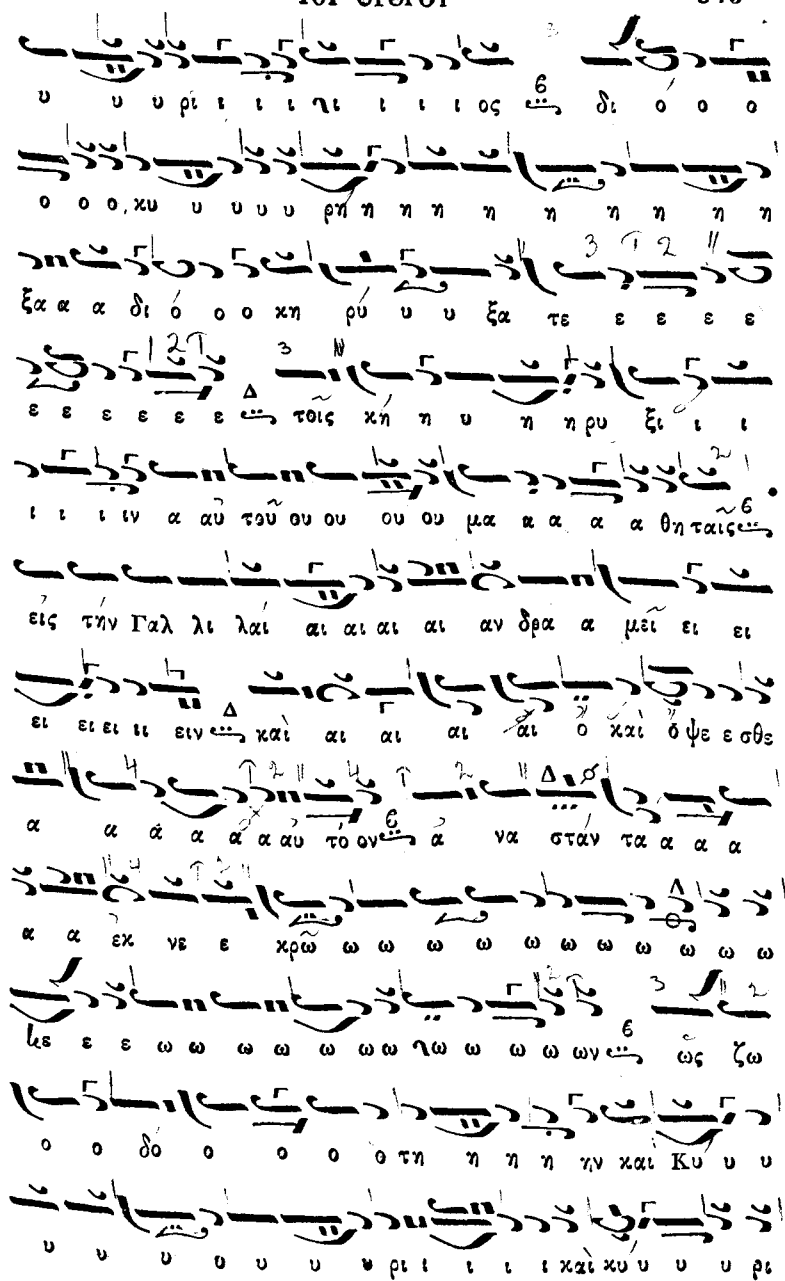 υ υ υ ρί ι ι ι ηι ι ι ι ος δι ό ο ο
ο ο ο, κυ υ υ υ υ ρη η η η η η η η η η
ξα α α δι ό ο ο κη ρύ υ υ ξα τε ε ε ε ε
ε ε ε ε ε ε ε Δ τοῖς κή η υ η η ρυ ξι ι ι
ι ι ι ιν α αὐ τοῦ ου ου ου ου μα α α α α θη ταῖς
εἰς τήν Γαλ λι λαί αι αι αι αι αν δρα α μεῖ ει ει
ει ει ει ει ειν Δ καὶ αι αι αι αι ὅ καὶ ὄ ψε ε σθε
α α ά α α α αὐ τὸ ον ἀ να στάν τα α α α
α α ἐκ νε ε κρῶ ω ω ω ω ω ω ω ω ω ω
κε ε ε ω ω ω ω ω ω ηω ω ω ω ων ὡς ζω
ο ο δό ο ο ο ο τη η η η ην καὶ Κύ υ υ
υ υ υ υ υ υ υ ρι ι ι ι ι καὶ κύ υ υ υ ρι